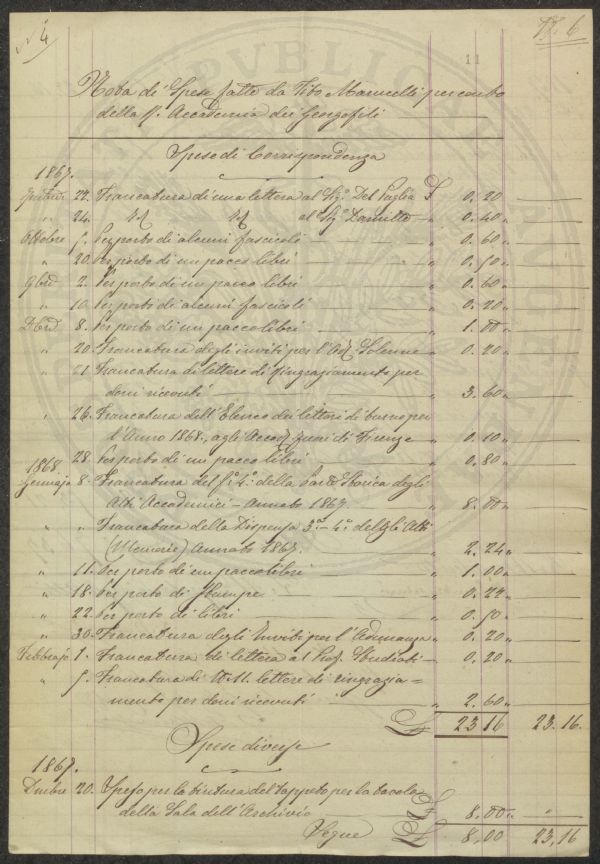 N 4
N. 6
11
Nota di Spese fatte da Tito Marucelli per conto
della R. Accademia dei Georgofili
Spese di Corrispondenza
1867.
22. Francatura di una lettera al Sig. Del Puglia £ 0. 20
" 24. Id Id al Sig. " 0. 40 "
Ottobre Per porto di alcuni fascicoli " 0. 60 "
" 20. Per porto di un pacco libri " 0. 50 "
9bre 2. Per porto di un pacco libri " 0. 60 "
" 10. Per porto di alcuni fascicoli " 0. 20 "
Dbre 8. Per porto di un pacco libri " 1. 00 "
" 20. Francatura degli inviti per l'Adza Solenne " 0. 20 "
" 21. Francatura di lettere di ringraziamento per
doni ricevuti " 3. 60 "
" 26. Francatura dell'Elenco dei lettori di turno per
l'Anno 1868, agli Accad. fuori di Firenze " 0. 10 "
" 28. Per porto di un pacco libri " 0. 80 "
1868
Gennajo 8. Francatura del della Parte Storica degli
Atti Accademici - Annata 1867 " 8. 00 "
" " Francatura della Dispensa 3a - 4a degli Atti
(Memorie) Annata 1867. " 2. 24 "
" 11. Per porto di un pacco libri " 1. 00 "
" 18. Per porto di Stampe " 0. 22 "
" 22. Per porto di libri " 0. 50 "
" 30. Francatura degli Inviti per l'Adunanza " 0. 20 "
Febbrajo 1. Francatura di lettera al Prof. Studiati " 0. 20 "
" Francatura di N. 11. lettere di ringrazia=
mento per doni ricevuti " 2. 60 "
£ 23 16 23. 16.
Spese diverse
1867.
20. Speso per la tintura del tappeto per la tavola
della Sala dell'Archivio £ 8. 00 "
Segue £ 8. 00 23, 16